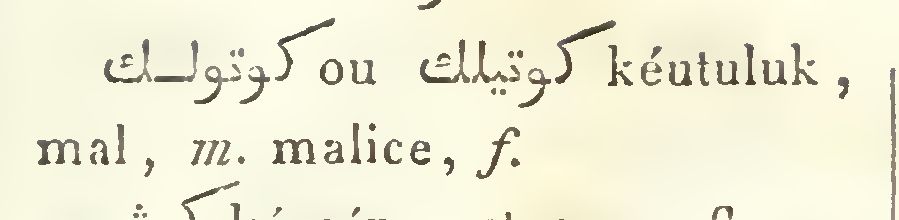 كوتولك ou كوتيللك kéutuluk,
mal, m. malice, f.